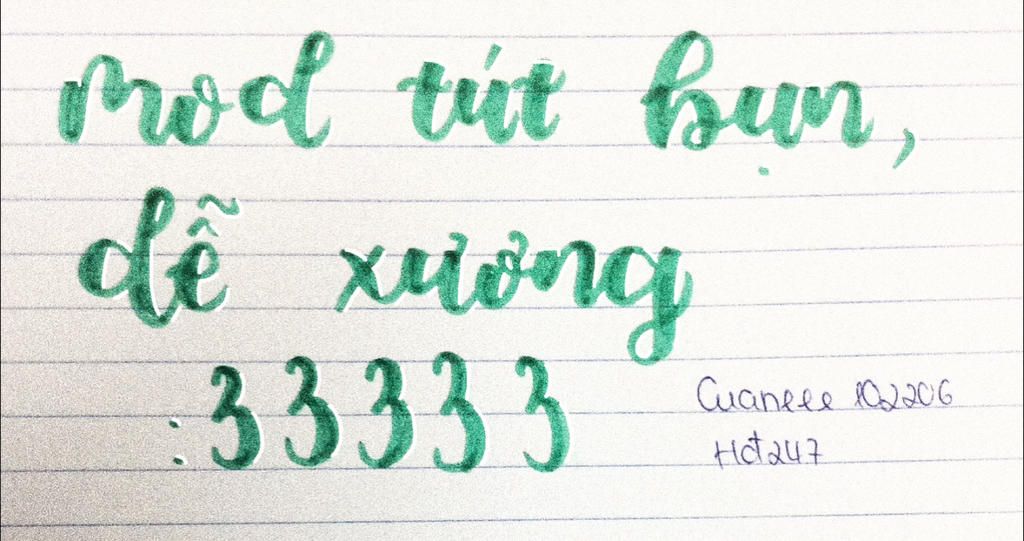 mod tút bụn,
dễ xương
:33333
Cuaneee 102206
Hđ247